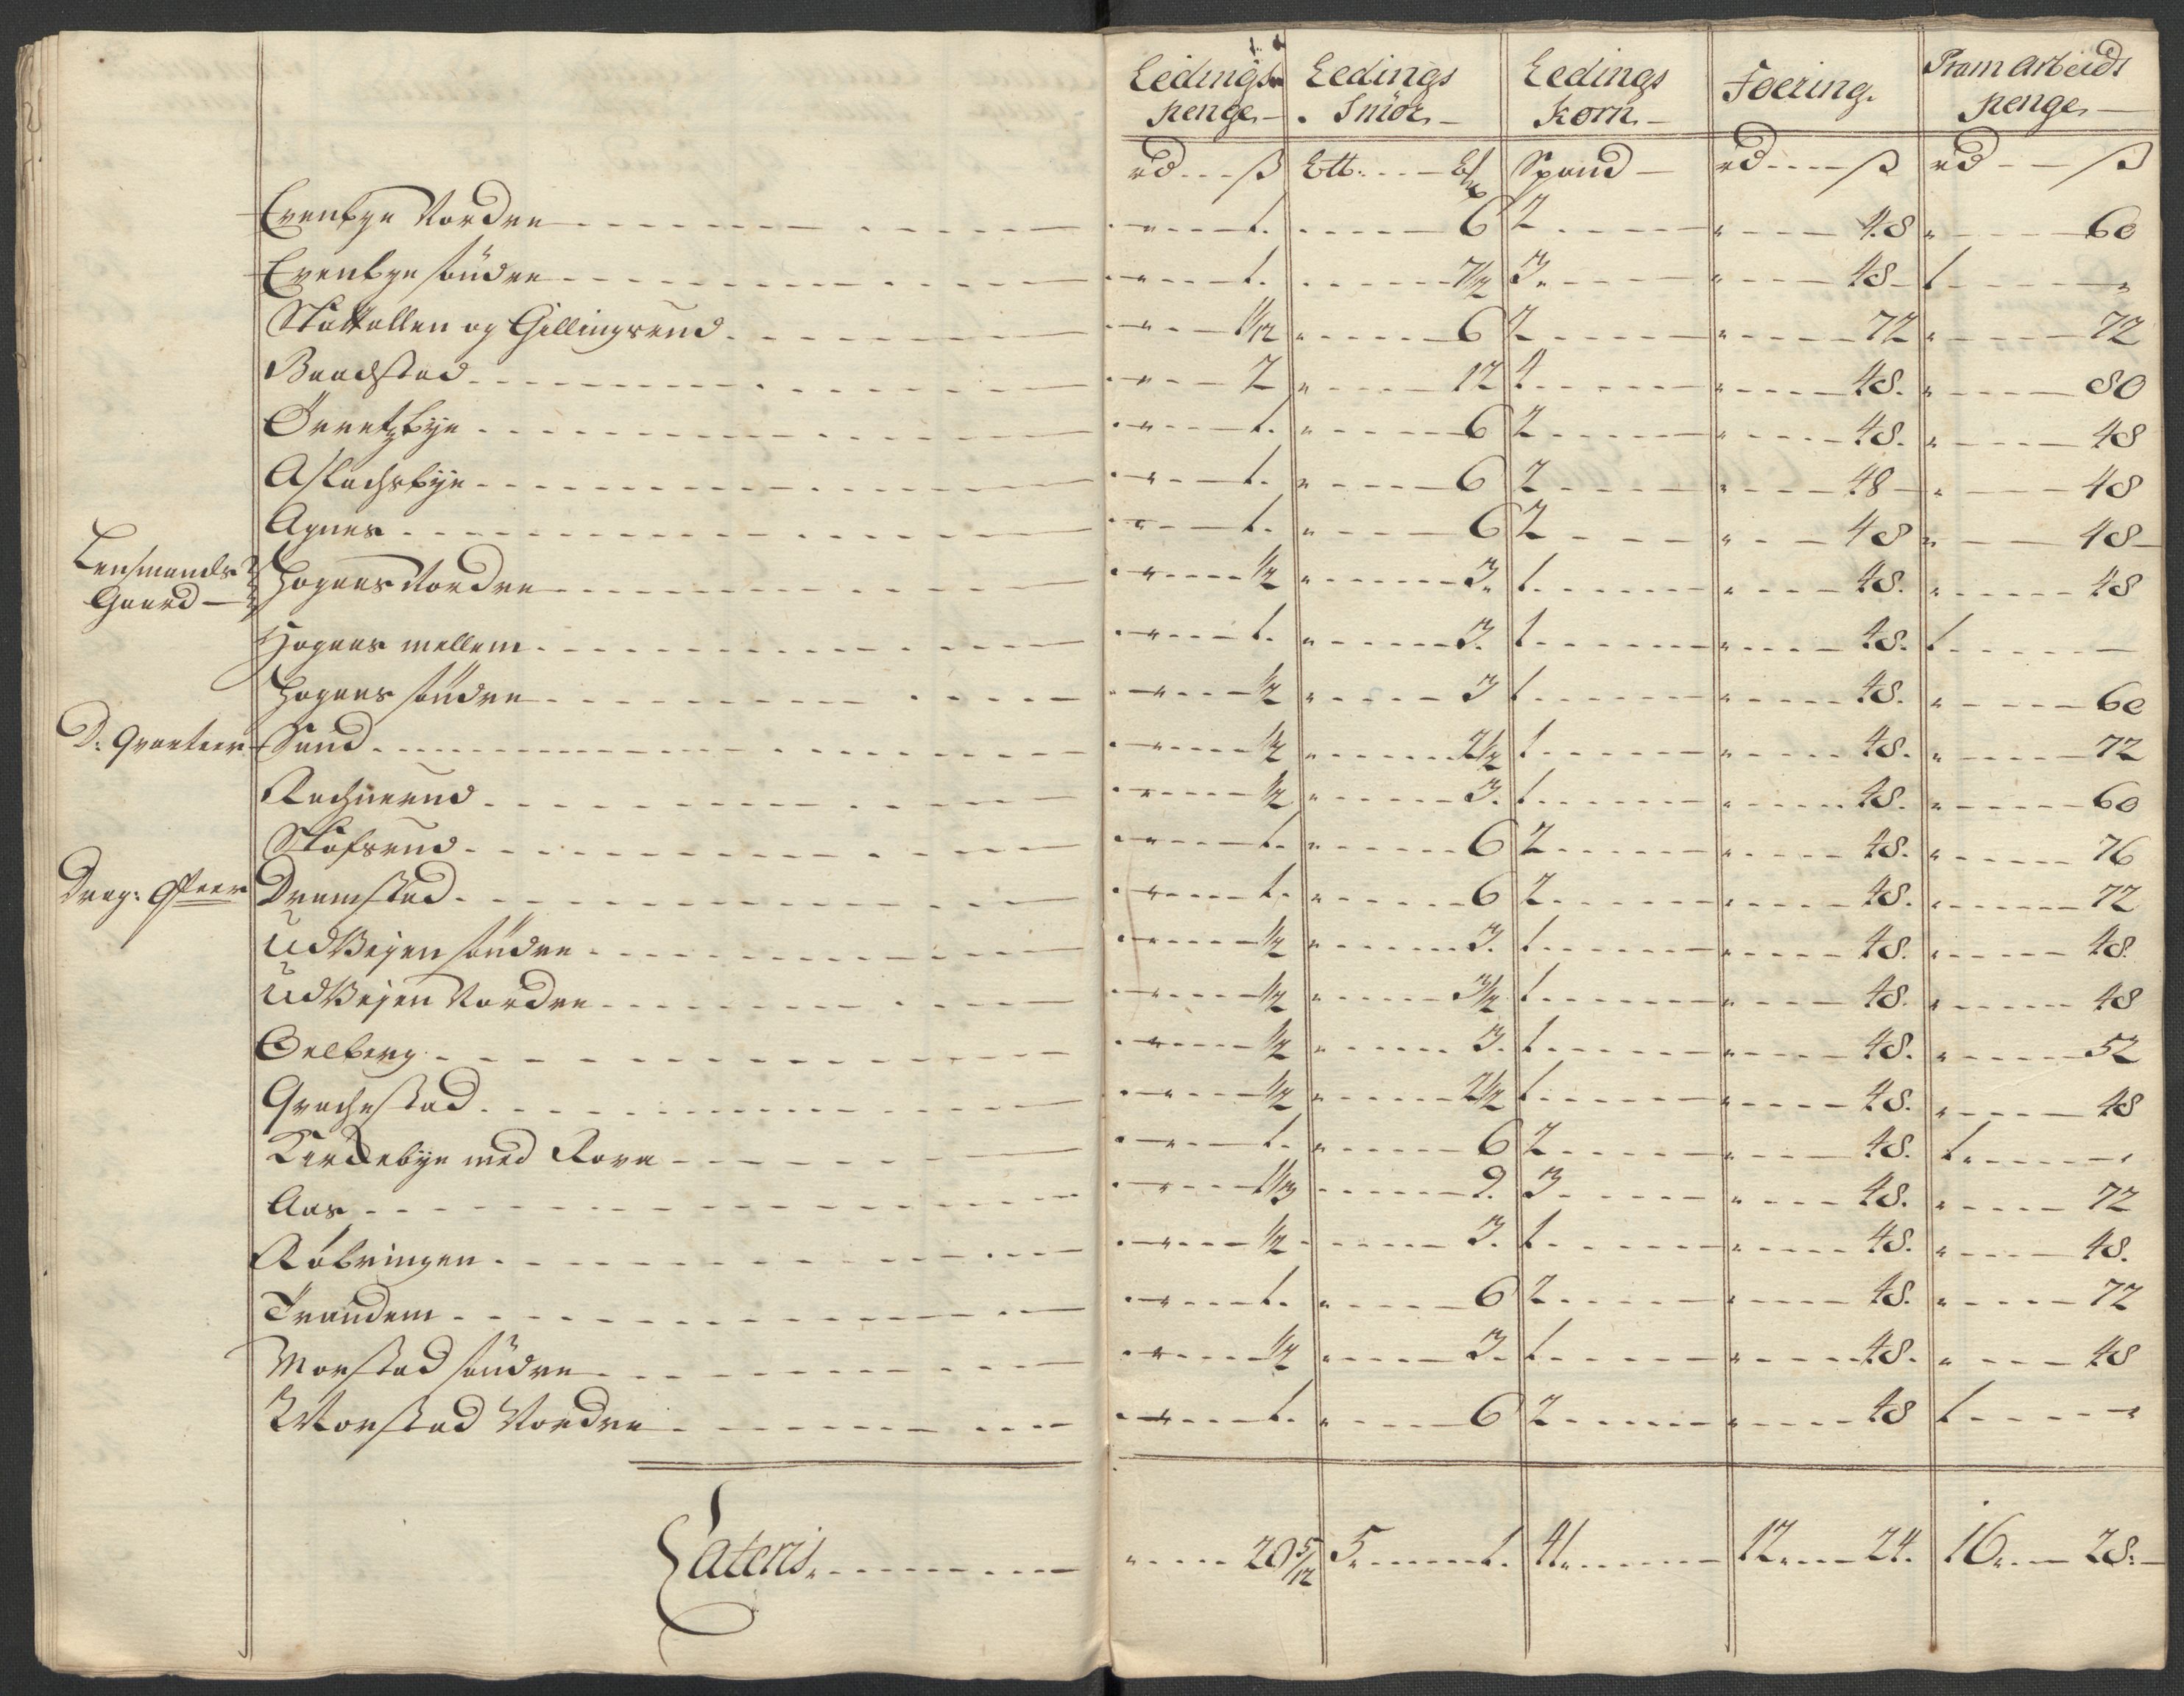 Ledings Ledings Ledings Foering. Pram Arbeids
penge Smör Korn penge
rd ß Ltt: Spand rd ß rd ß
Evenbye Nordre 1. 6 2 48 60
Evenbye söndre 1. 7½ 3 48 1
Skattallen og Gillingrud 1½ 6 2 72 72
Baadstad 2 12 4 48. 80
Örretzbye 1. 6 2 48. 48
Aslachsbye 1. 6 2 48 48
Agnes 1. 6 2 48 48
Lensmands
Gaard Hognes Nordre ½ 3. 1 48. 48
Hognes mellem 1. 3. 1 48. 1
Hognes söndre ½ 3 1 48. 60
D: Qvarteer Sand ½ 2½ 1 48. 72
Rachnerud ½ 3. 1 48. 60
Skofsrud 1. 6 2 48. 76
Drag: Dramstad 1. 6 2 48. 72
UdVeyen söndre ½ 3. 1 48. 48.
UdVeyen Nordre ½ 3½ 1 48. 48
Oelberg ½ 3. 1 48. 52
Grachestad ½ 2½ 1 48. 48
Kirkebye med Rova 1. 6 2 48. 1
Aas 1⅓ 9. 3 48. 72
Röbringen ½ 3. 1 48. 48.
Trandem 1. 6 2 48. 72
Morstad söndre ½ 3. 1 48. 48
Morstad Nordre 1. 6 2 48 1
Lateris 20 5/12 5 1. 41 12 24. 16 28.